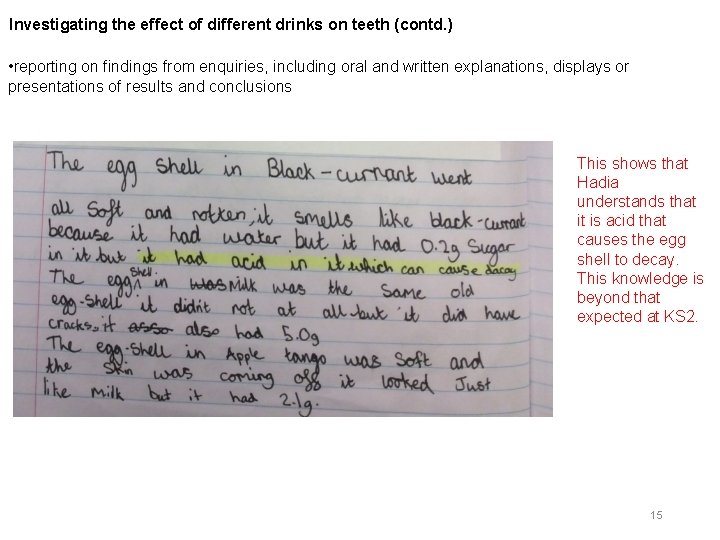 Investigating the effect of different drinks on teeth (contd.)
•reporting on findings from enquiries, including oral and written explanations, displays or
presentations of results and conclusions
The egg shell in Black-currant went
all soft and rotten, it smells like black-currant
because it had water but it had 0.2g sugar
in it but it had acid in it which can cause decay
The egg shell in was Milk was the same old
egg-shell it didn't not at all but it did have
cracks, it asso also had 5.0g
The egg-shell in Apple tango was soft and
the skin was coming off it looked Just
like milk but it had 2.1g.
This shows that
Hadia
understands that
it is acid that
causes the egg
shell to decay.
This knowledge is
beyond that
expected at KS2.
15